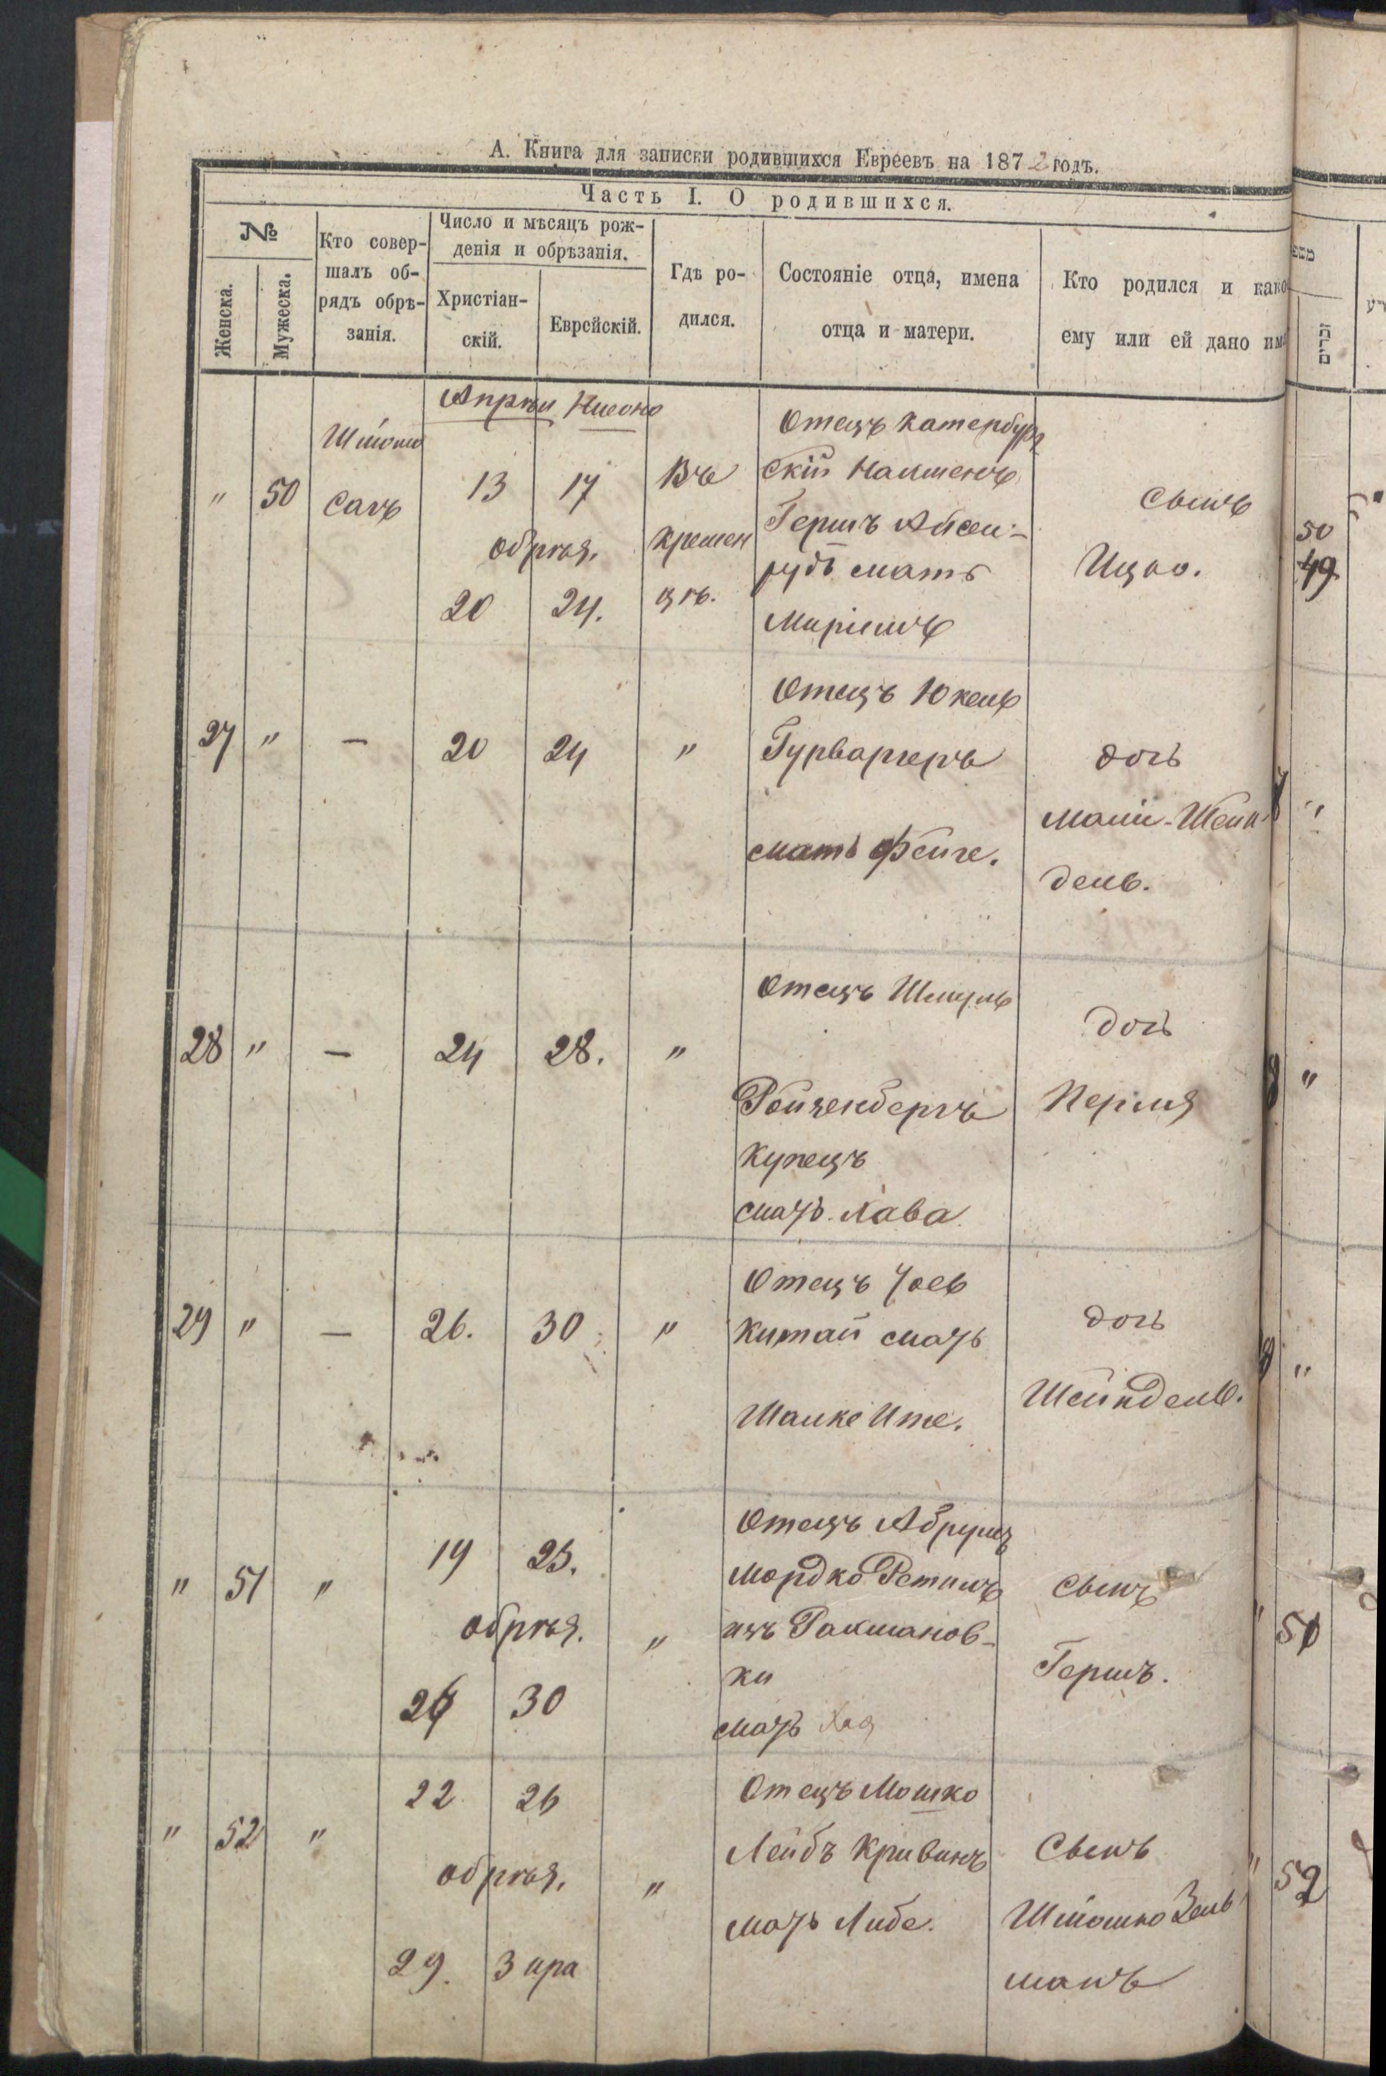 А. Книга для записки родившихся Евреевъ на 1872 годъ.
Часть I. О родившихся.
№
Женска.
Мужеска.
Кто совер-
шалъ об-
рядъ обрѣ-
занія.
Число и мѣсяцъ рож-
денія и обрѣзанія.
Христіан-
скій.
Еврейскій.
Гдѣ ро-
дился.
Состояніе отца, имена
отца и матери.
Кто родился и како
ему или ей дано им
זכרים
" 50
Сагъ
13 17
обрѣз.
20 24.
Въ
Кремен
цѣ.
Отецъ Катербург
скій
Гершъ
мать
Маріимъ
сынъ
Ицко.
50
49
27 " — 20 24 "
Отецъ Юкель
Гурваргеръ
мать Фейге.
дочь
Шейн-
дель.
"
28 " — 24 28. "
Отецъ Шмуль
Ройзенбергъ
Купецъ
мать Хава
дочь
Перля
"
29 " — 26. 30 "
Отецъ
Китай мать
Ите.
дочь
Шейндель.
"
" 51 "
19 23.
обрѣз.
26 30
"
Отецъ Абрумъ
Мордко
изъ Рахманов-
ки
мать Хая
сынъ
Гершъ.
51
" 52 "
22 26
обрѣз.
29. 3 ира
"
Отецъ Мошко
Лейбъ Кривинъ
мать Либе.
Сынъ
Зель
манъ
52